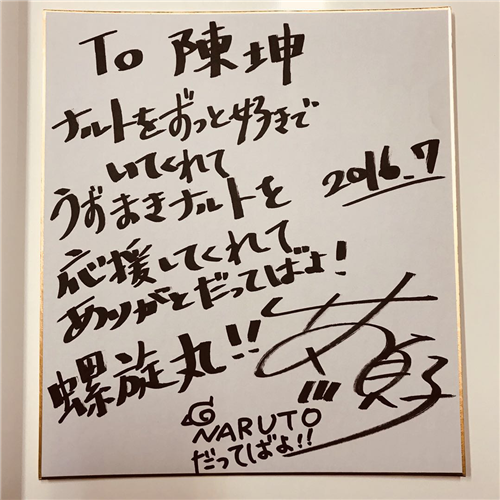 To 陳坤
ナルトをずっと好きで
いてくれて
うずまきナルトを
応援してくれて
ありがとだってばよ!
螺旋丸!!
2016.7
NARUTO
だってばよ!!